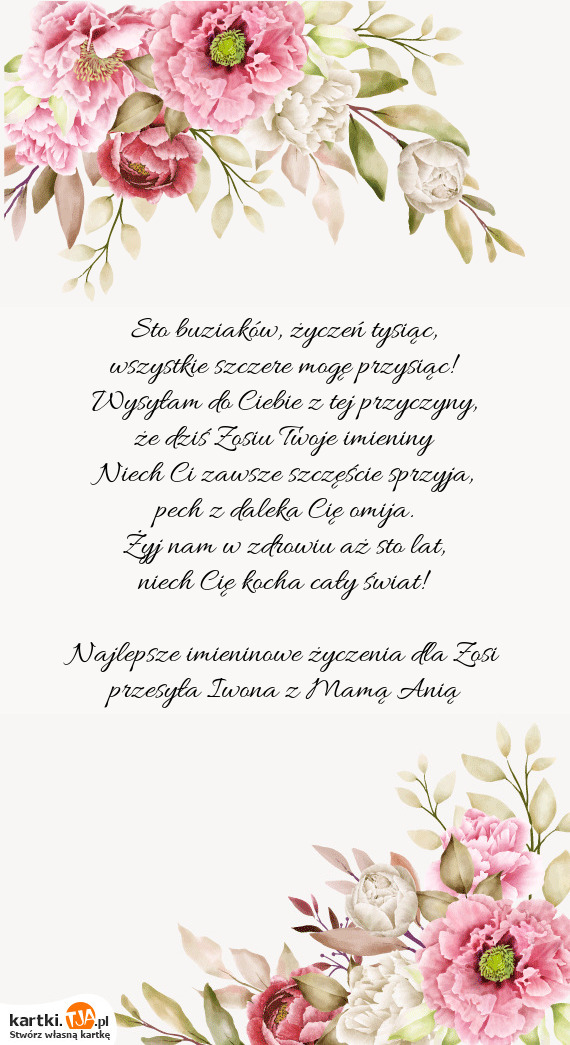 Sto buziaków, życzeń tysiąc,
wszystkie szczere mogę przysiąc!
Wysyłam do Ciebie z tej przyczyny,
że dziś Zosiu Twoje imieniny
Niech Ci zawsze szczęście sprzyja,
pech z daleka Cię omija.
Żyj nam w zdrowiu aż sto lat,
niech Cię kocha cały świat!
Najlepsze imieninowe życzenia dla Zosi
przesyła Iwona z Mamą Anią
kartki.TJA.pl
Stwórz własną kartkę